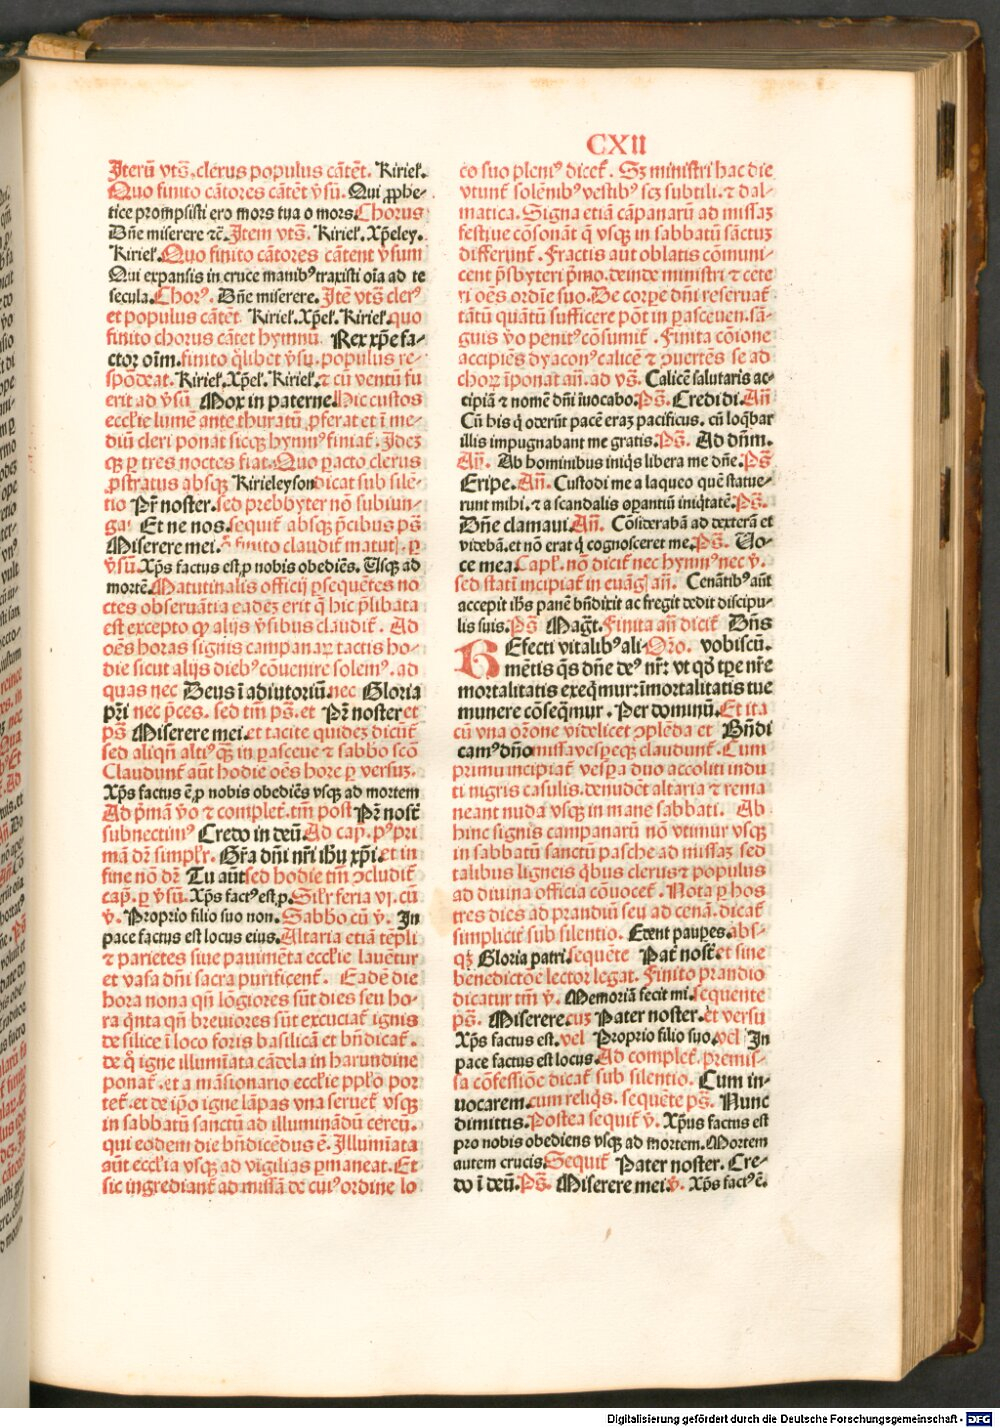 CXII
Iterū vts̄. clerus populus cātēt. Kiriel̄.
Quo finito cātores cātēt v̄sū. Qui ꝓphe-
tice prompsisti ero mors tua o mors. Chorus
Dn̄e miserere ⁊c̄. Item vts̄. Kiriel̄. Xp̄eley.
Kiriel̄. Quo finito cātores cātent v̄sum
Qui expansis in cruce manibꝰ traxisti oīa ad te
secula. Chorꝰ. Dn̄e miserere. Itē vts̄ clerꝰ
et populus cātēt Kiriel̄. Xp̄el̄. Kiriel̄. quo
finito chorus cātet hymnū Rex xp̄e fa-
ctor oīm. finito q̄libet v̄su. populus re-
spōdeat. Kiriel̄. Xp̄el̄. Kiriel̄. ⁊ cū ventū fu
erit ad v̄sū Mox in paterne. Hic custos
eccl̄ie lumē ante thuratū ꝓferat et ī me-
diū cleri ponat sicqꝫ hymnꝰ finiat̄. Idez
qꝫ ꝑ tres noctes fiat. Quo ꝑacto clerus
ꝓstratus absqꝫ Kirieleyson dicat sub silē-
tio Pr̄ noster. sed presbyter nō subiun-
gat Et ne nos. sequit̄ absqꝫ p̄cibus ps̄
Miserere mei. finito claudit̄ matut̄. ꝑ
v̄sū. Xp̄s factus est ꝓ nobis obediēs. Usqꝫ ad
mortē. Matutinalis officij ꝑsequētes no
ctes obseruātia eadez erit q̄ hic p̄libata
est excepto qꝙ alijs v̄sibus claudit̄. Ad
oēs horas signis campanaꝝ tactis ho-
die sicut alijs diebꝰ cōuenire solemꝰ. ad
quas nec Deus ī adiutoriū. nec Gloria
p̄ri nec p̄ces. sed tm̄ ps̄. et Pr̄ noster et
ps̄ Miserere mei. et tacite quidez dicūt̄
sed aliqn̄ altiꝰ q̄ in parasceue ⁊ sabb̄o scō
Claudunt̄ aūt hodie oēs hore ꝑ versuz.
Xp̄s factus ē ꝓ nobis obediēs vsqꝫ ad mortem
Ad p̄mā v̄o ⁊ complet̄. tm̄ post Pr̄ nost̄
subnectimꝰ Credo in deū. Ad cap̄. pꝰ pri
mā dr̄ simpl̄r. Gr̄a dn̄i nr̄i ih̄u xp̄i. et in
fine nō dr̄ Tu aūt sed hodie tm̄ ↄcludit̄
cap̄. ꝑ v̄sū. Xp̄s factꝰ est ꝓ. Sil̄r feria vj. cū
v̄. Proprio filio suo non. Sabb̄o cū v̄. In
pace factus est locus eius. Altaria etiā tēpli
⁊ parietes siue pauimēta eccl̄ie lauētur
et vasa dn̄i sacra purificent̄. Eadē die
hora nona qn̄ lōgiores sūt dies seu ho-
ra q̄nta qn̄ breuiores sūt excuciat̄ ignis
de silice ī loco foris basilicā et bn̄dicat̄.
de q̄ igne illumīata cādela in harundine
ponat̄. et a māsionario eccl̄ie pp̄lo por
tet̄. et de ip̄o igne lāpas vna seruet̄ vsqꝫ
in sabbatū sanctū ad illuminādū cereū.
qui eodem die bn̄dicēdus ē. Illumīata
aūt eccl̄ia vsqꝫ ad vigilias ꝑmaneat. Et
sic ingrediant̄ ad missā de cuiꝰ ordine lo
co suo pleniꝰ dicet̄. Sꝫ ministri hac die
vtunt̄ solēnibꝰ vestibꝰ scꝫ subtili. ⁊ dal-
matica. Signa etiā cāpanarū ad missaꝫ
festiue cōsonāt q̄ vsqꝫ in sabbatū sāctuz
differunt̄. Fractis aut oblatis cōmuni-
cent p̄sbyteri p̄mo. deinde ministri ⁊ cete
ri oēs ordīe suo. De corpe dn̄i reseruat̄
tātū quātū sufficere pōt in pasceuen. sā-
guis v̄o penitꝰ cōsumit̄. Finita cōione
accipiēs dyaconꝰ calicē ⁊ ↄuertēs se ad
choꝝ īponat an̄. ad vs̄. Calicē salutaris ac-
cipiā ⁊ nomē dn̄i iuocabo. Ps̄. Credidi. An̄
Cū his q̄ oderūt pacē eraꝫ pacificus. cū loq̄bar
illis impugnabant me gratis. Ps̄. Ad dn̄m.
An̄. Ab hominibus iniq̄s libera me dn̄e. Ps̄
Eripe. An̄. Custodi me a laqueo quē statue-
runt mihi. ⁊ a scandalis oꝑantiū iniq̄tatē. Ps̄.
Dn̄e clamaui. An̄. Cōsiderabā ad dexterā et
videbā. et nō erat q̄ cognosceret me. Ps̄. Uo-
ce mea. Capl̄. nō dicit̄ nec hymnꝰ nec v̄.
sed statī incipiat̄ in euāḡ an̄. Cenātibꝰ aūt
accepit ih̄s panē bn̄dixit ac fregit dedit discipu-
lis suis. Ps̄ Maḡt. Finita an̄ dicit̄ Dn̄s
Refecti vitalibꝰ ali- Oro. vobiscū.
mētis q̄s dn̄e deꝰ nr̄: vt qd̄ tꝑe nr̄e
mortalitatis exeq̄mur: īmortalitatis tue
munere cōseq̄mur. Per dominū. Et ita
cū vna orōne videlicet ↄplēda et Bn̄di
camꝰ dn̄o missa vesꝑeqꝫ claudunt̄. Cum
primu incipiat̄ vesꝑa duo accoliti indu
ti nigris casulis. denudēt altaria ⁊ rema
neant nuda vsqꝫ in mane sabbati. Ab
hinc signis campanarū nō vtimur vsqꝫ
in sabbatū sanctū pasche ad missaꝫ sed
talibus ligneis q̄bus clerus ⁊ populus
ad diuina officia cōuocet̄. Nota ꝑ hos
tres dies ad prandiū seu ad cenā. dicat̄
simplicit̄ sub silentio. Edent pauꝑes. abs-
qꝫ Gloria patri. sequēte Pat̄ nost̄. et sine
benedictōe lector legat. Finito prandio
dicatur tm̄ v̄. Memoriā fecit mi. sequente
ps̄. Miserere. cuꝫ Pater noster. et versu
Xp̄s factus est. vel Proprio filio suo. vel In
pace factus est locus. Ad complet̄. premis-
sa cōfessiōe dicat̄ sub silentio. Cum in-
uocarem. cum reliq̄s. sequēte ps̄. Nunc
dimittis. Postea sequit̄ v̄. Xp̄us factus est
pro nobis obediens vsqꝫ ad mortem. Mortem
autem crucis. Sequit̄ Pater noster. Cre-
do ī deū. Ps̄. Miserere mei. v̄. Xp̄s factꝰ ē.
Digitalisierung gefördert durch die Deutsche Forschungsgemeinschaft - DFG